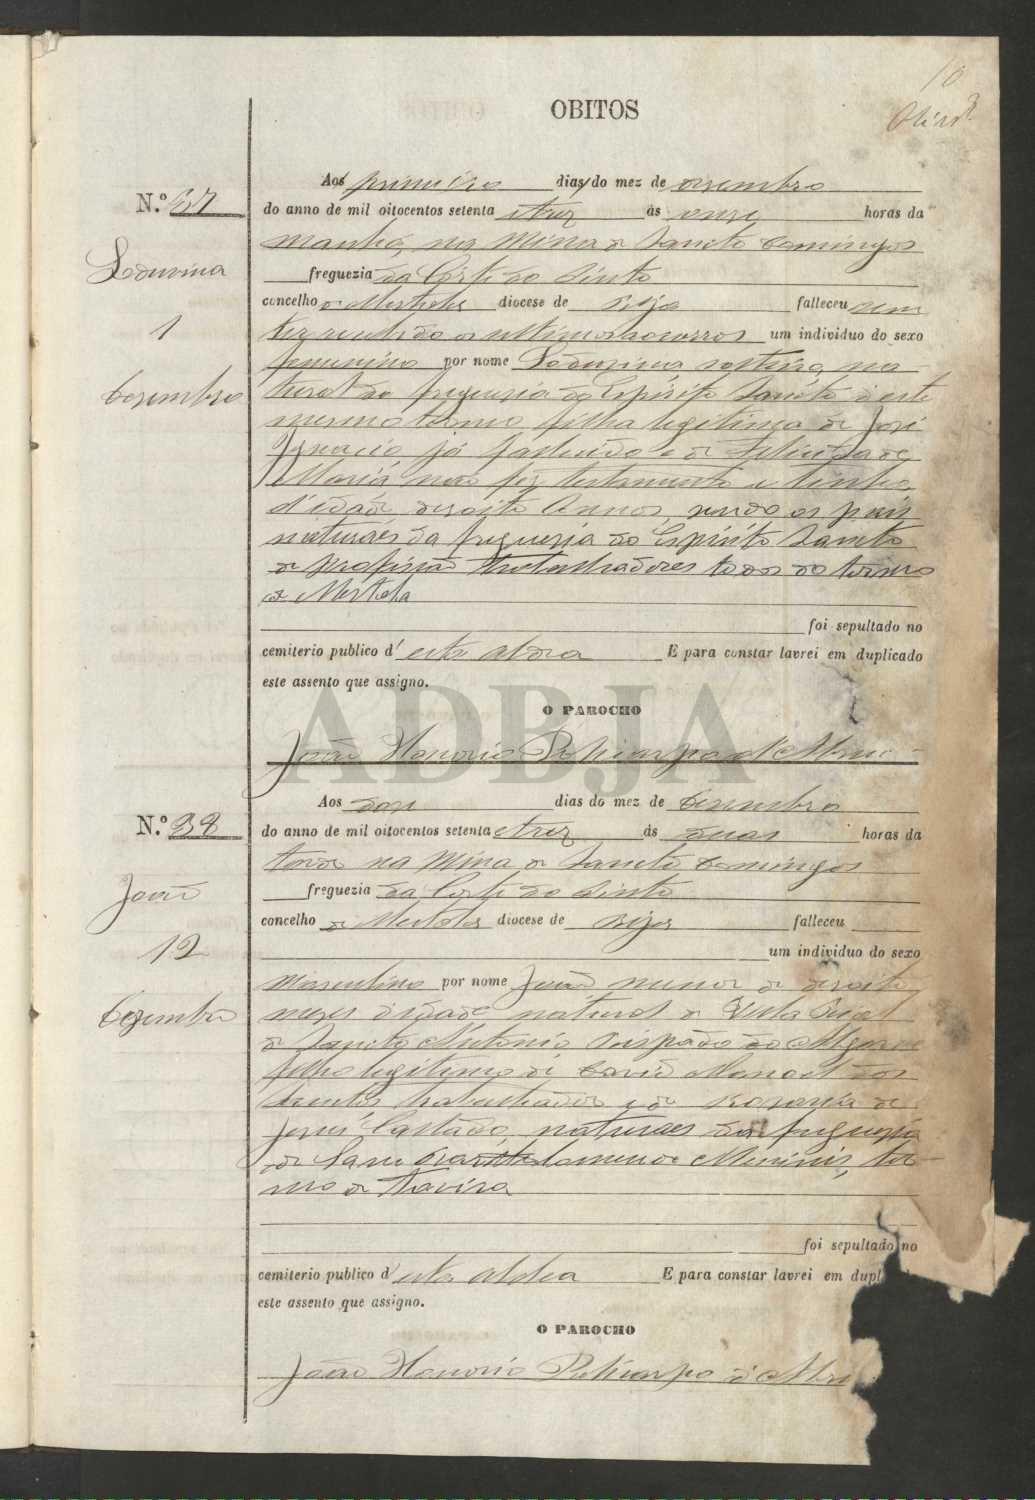 10
OBITOS
Aos primeiro dias do mez de dezembro
N.º 37
do anno de mil oitocentos setenta e trez ás onze horas da
manhã, na Mina de Sancto Domingos
Loduvina
freguezia da Corte do Pinto
concelho de Mertola diocese de Beja falleceu sem
1
ter recebido os ultimos socorros um individuo do sexo
femenino por nome Loduvina, solteira, na
Dezembro
tural da freguezia do Espirito Sancto d'este
mesmo termo filha legitima de José
Ignacio já fallecido e de Felicidade
Maria não fez testamento e tinha
d'idade dezoito Annos, sendo os pais
naturaes da freguezia do Espirito Sancto
de profissão trabalhadores todos do termo
de Mertola
foi sepultado no
cemiterio publico d' esta aldea E para constar lavrei em duplicado
este assento que assigno.
O PAROCHO
ADBJA
João Honorio Policarpo d'Abreu
Aos doze dias do mez de Dezembro
N.º 38
do anno de mil oitocentos setenta e trez ás duas horas da
tarde na Mina de Sancto Domingos
João
freguezia da Corte do Pinto
concelho de Mertola diocese de Beja falleceu
12
um individuo do sexo
Masculino por nome João menor de dezoito
Dezembro
mezes d'idade natural de Villa Real
de Sancto Antonio Bispado do Algarve
filho legitimo de David Manoel dos
Sanctos trabalhador e de Rozaria de
Jesus Castado, naturaes da freguezia
de termo
de Tavira
foi sepultado no
cemiterio publico d' esta aldea E para constar lavrei em dupl
este assento que assigno.
O PAROCHO
João Honorio Policarpo d'Abre